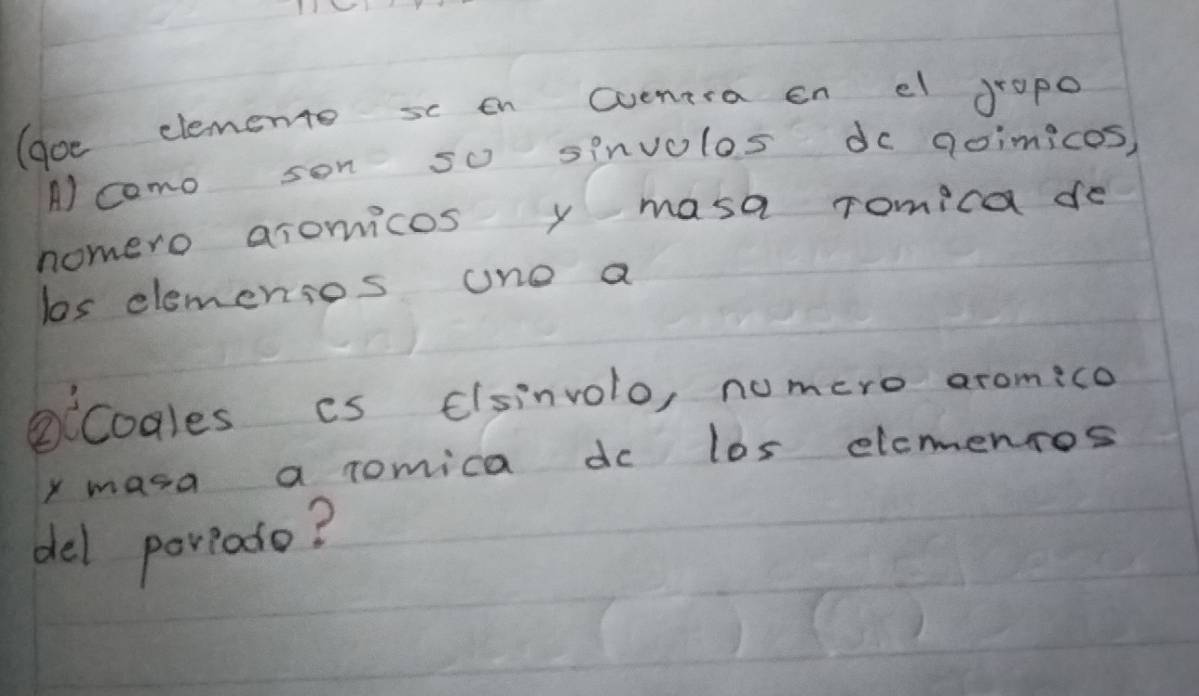 (que elemento se en cuentra en el grupo
A) como son su sinvolos de quimicos,
nomero atomicos y masa tomica de
los elementos uno a
② ¿Coales es elsinvolo, numero atomico
y masa a tomica de los elementos
del poriodo?